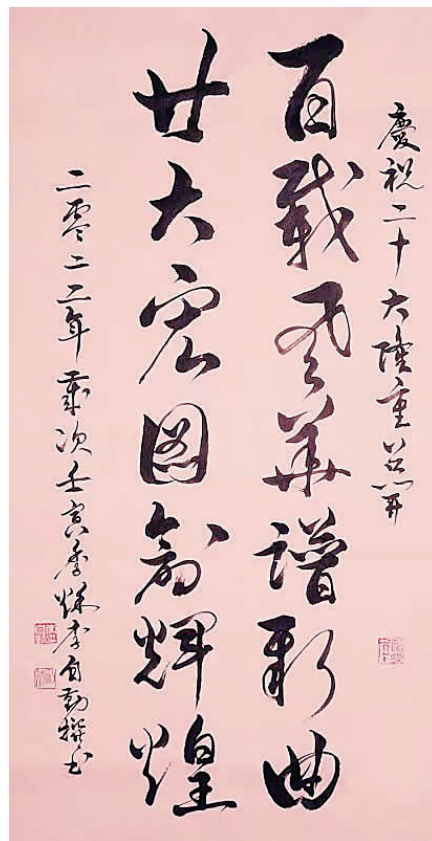 慶祝二十大隆重召開
百載風華譜新曲
廿大宏图創輝煌
二零二二年歲次壬寅季秋李自勤撰书